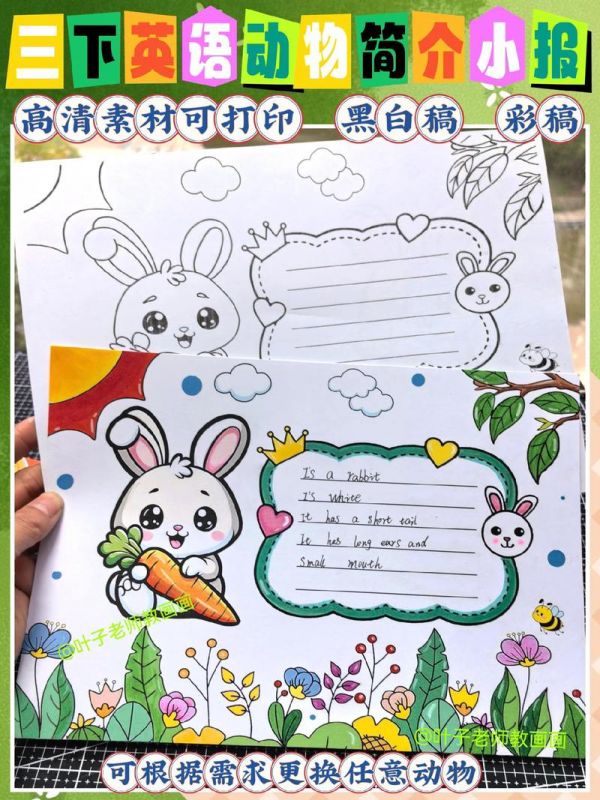 三下英语动物简介小报
高清素材可打印 黑白稿 彩稿
Is a rabbit
I's white
It has a short tail
It has long ears and
Small mouth
@叶子老师教画画
@叶子老师教画画
可根据需求更换任意动物